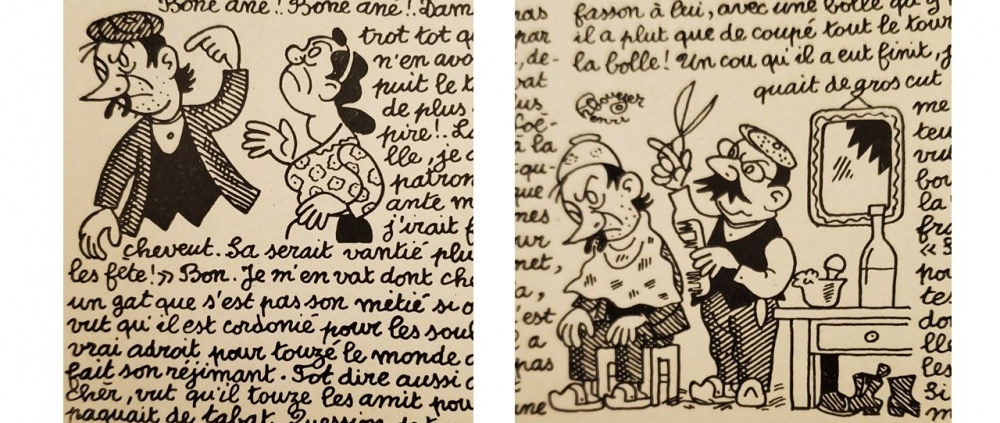 Bone ane! Bone ane! Dam
trot tot q
n'en avo
puit le t
de plus
pire! La
lle, je c
patron
ante m
j'irait f
cheveut. Sa serait vantié plu
les fete!» Bon. Je m'en vat dont che
un gat que s'est pas son métié si o
vut qu'il est cordonié pour les soul
vrai adroit pour touzé le monde c
fait son réjimant. Tot dire aussi c
chèr, vut qu'il touze les amit pou
paquait de tabat.
nas
par
, de-
vat
us
Coè-
à la
qu-
que
mes
ur
net,
a,
'est
a
pas
une
fasson à lui, avec une bolle qu'y
il a plut que de coupé tout le tour
la bolle! Un cou qu'il a eut finit, j
quait de gros cut
me
teu
vut
bou
la
fro
« S
pou
tes
dou
lle
les
Si
m
Bouyer
Henri